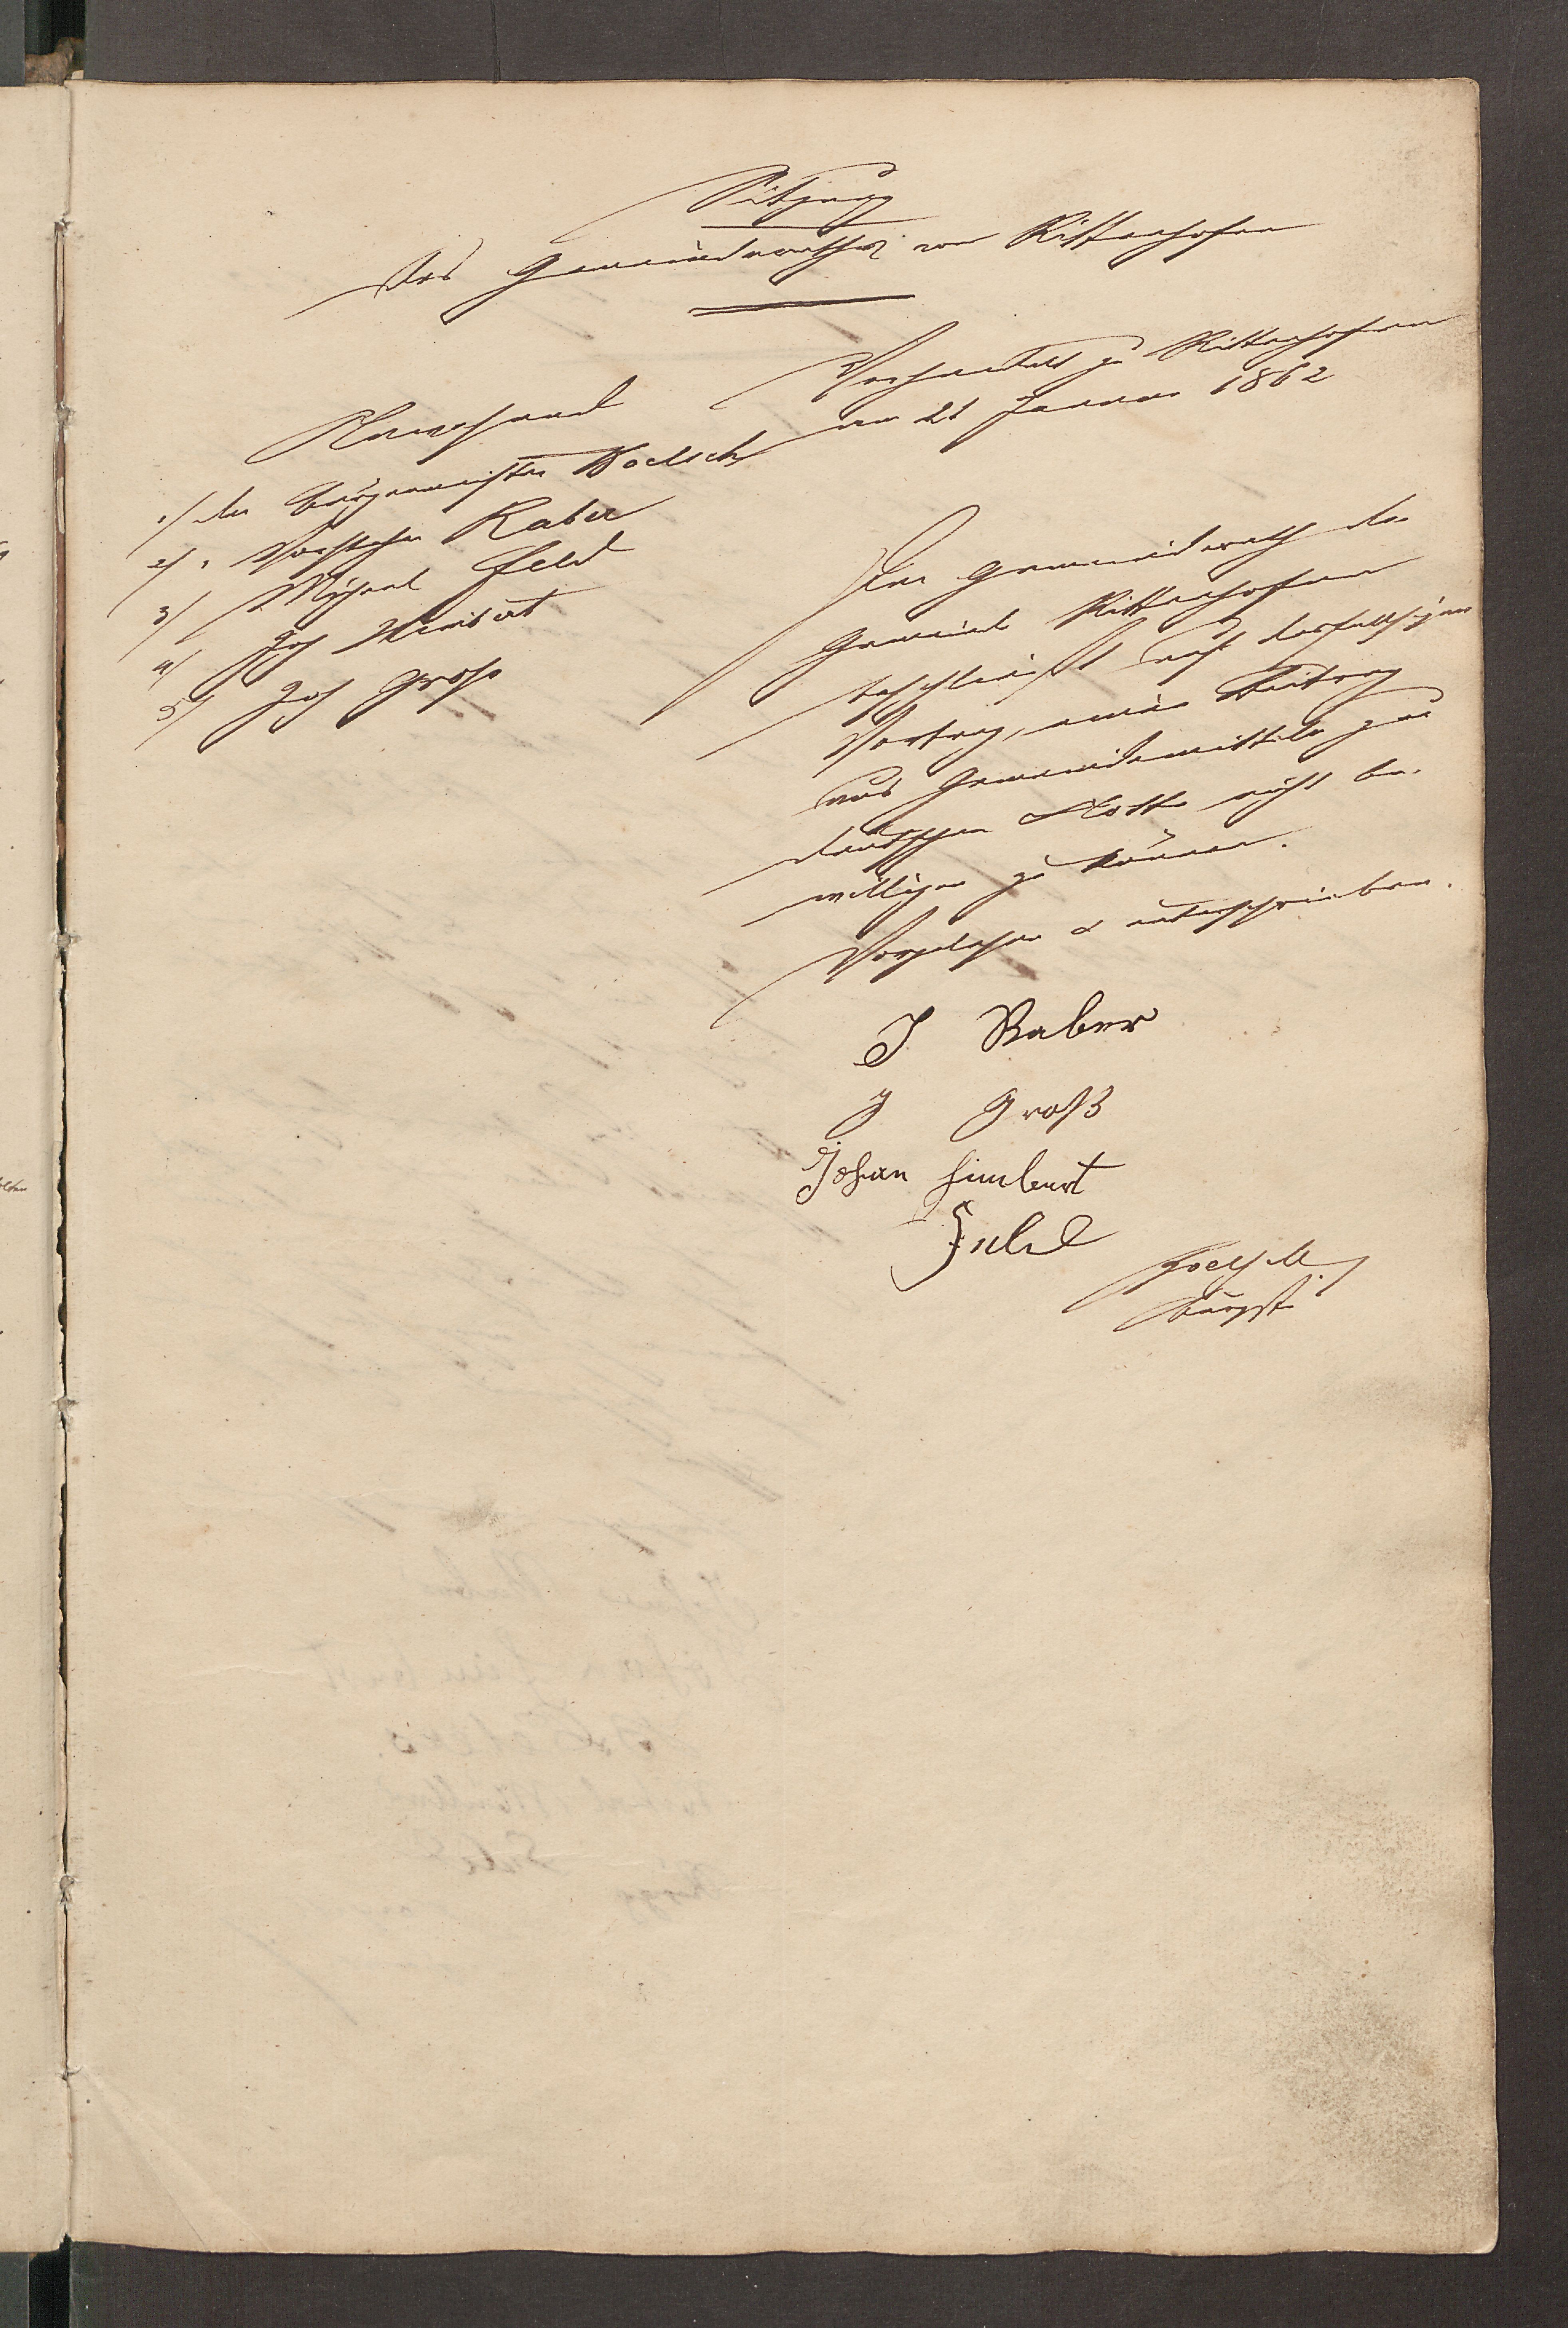 Sitzung
des Gemeinderathes von Rittenhofen
Verhandelt zu Rittenhofen
am 21 Januar 1862
Anwesend
1/ der Bürgermeister
2/ " Vorsteher Raber
3/ Michael Feld
4/ Joh Heimbürt
5/ Joh Gross
Der Gemeinderath der
Gemeinde Rittenhofen
beschliest auf desfallsigen
Vortrag, einen Beitrag
aus Gemeindemitteln zur
deutschen Flotte nicht be-
willigen zu können.
Vorgelesen & unterschrieben.
J Raber
J Groß
Johan Heimburt
Feld
Bürgst